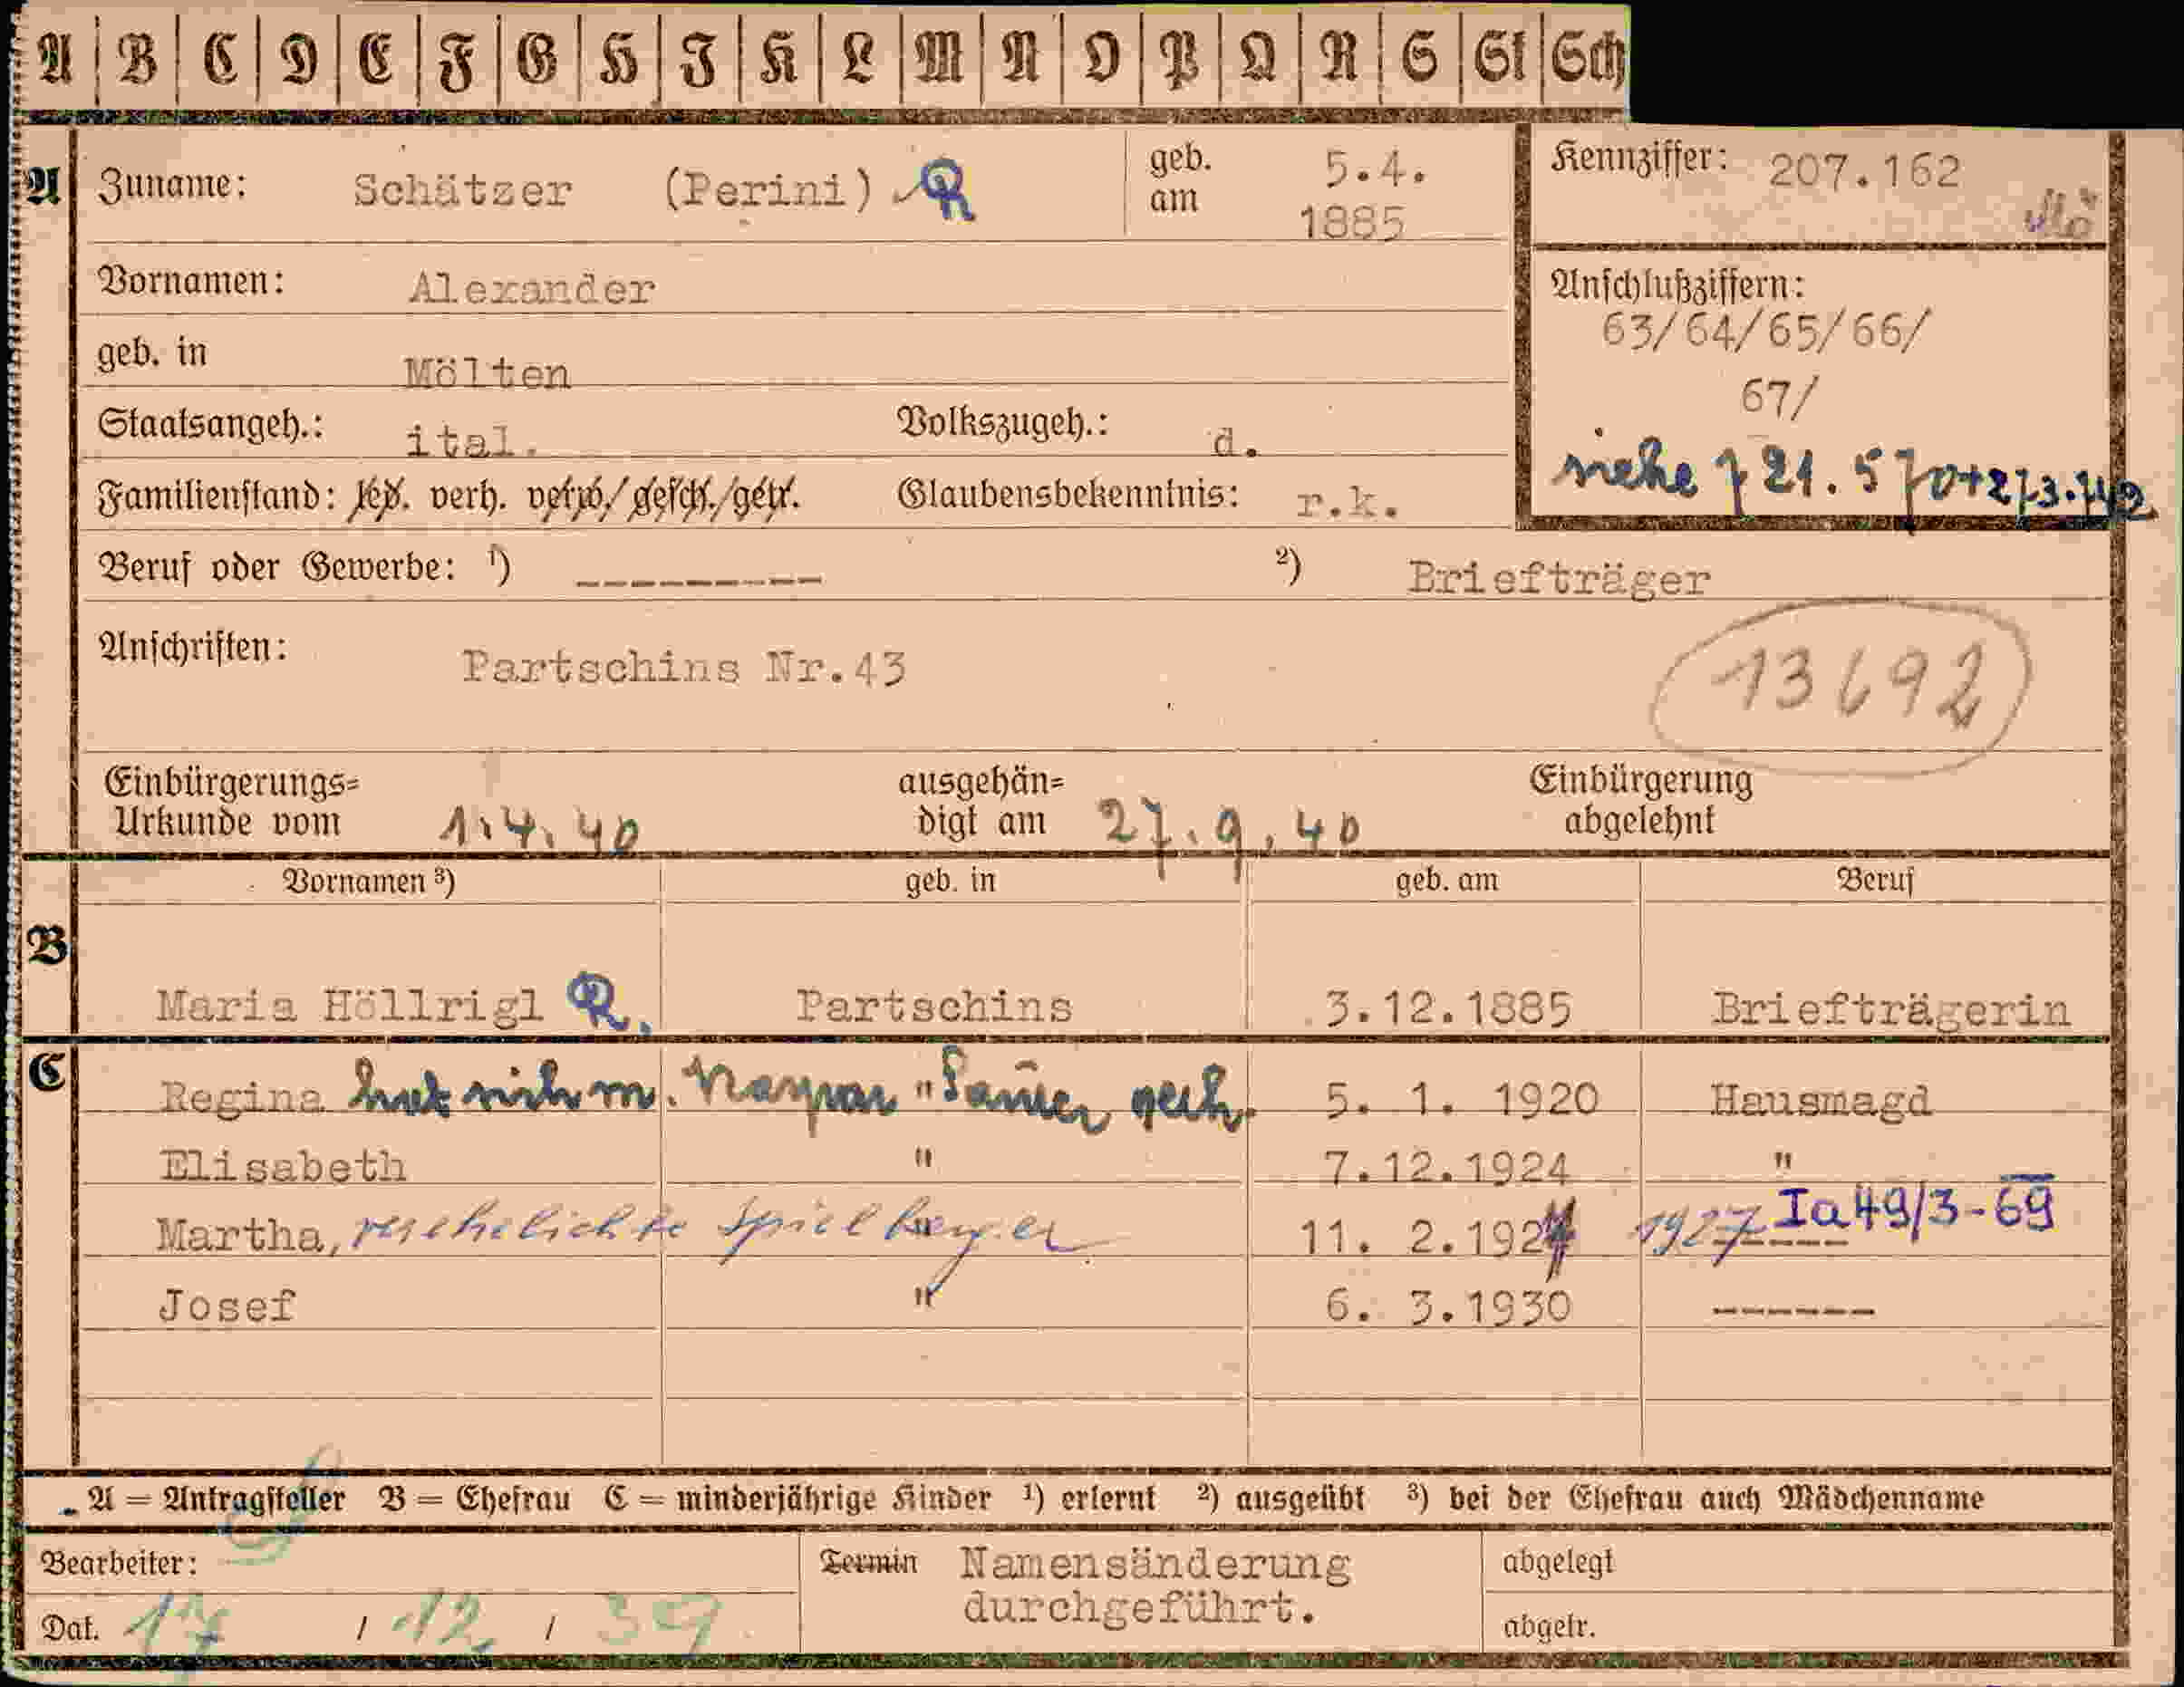 A B C D E F G H I K L M N O P Q R S St Sch
A Zuname: Schätzer (Perini) R geb. am 5.4. 1885 Kennziffer: 207.162
Vornamen: Alexander
Anschlußziffern:
63/64/65/66/
67/
geb. in Mölten
Staatsangeh.: ital. Volkszugeh.: d.
siehe 721.570+273.742
Familienstand: led. verh. verw./gesch./getr. Glaubensbekenntnis: r.k.
Beruf oder Gewerbe: ¹) --------- ²) Briefträger
Anschriften: Partschins Nr.43
13692
Einbürgerungs=
Urkunde vom 1.4.40
ausgehän=
digt am 27.9.40
Einbürgerung
abgelehnt
Vornamen ³) geb. in geb. am Beruf
B
Maria Höllrigl R. Partschins 3.12.1885 Briefträgerin
C
Regina hat sich m. " geh. 5. 1. 1920 Hausmagd
Elisabeth " 7.12.1924 "
Martha, verehelichte Spielberger " 11. 2.192 1927 ------ Ia 49/3-69
Josef " 6. 3.1930 ------
A = Antragsteller B = Ehefrau C = minderjährige Kinder ¹) erlernt ²) ausgeübt ³) bei der Ehefrau auch Mädchenname
Bearbeiter:
Termin Namensänderung
durchgeführt.
abgelegt
Dat. 17 / 12 / 39
abgetr.